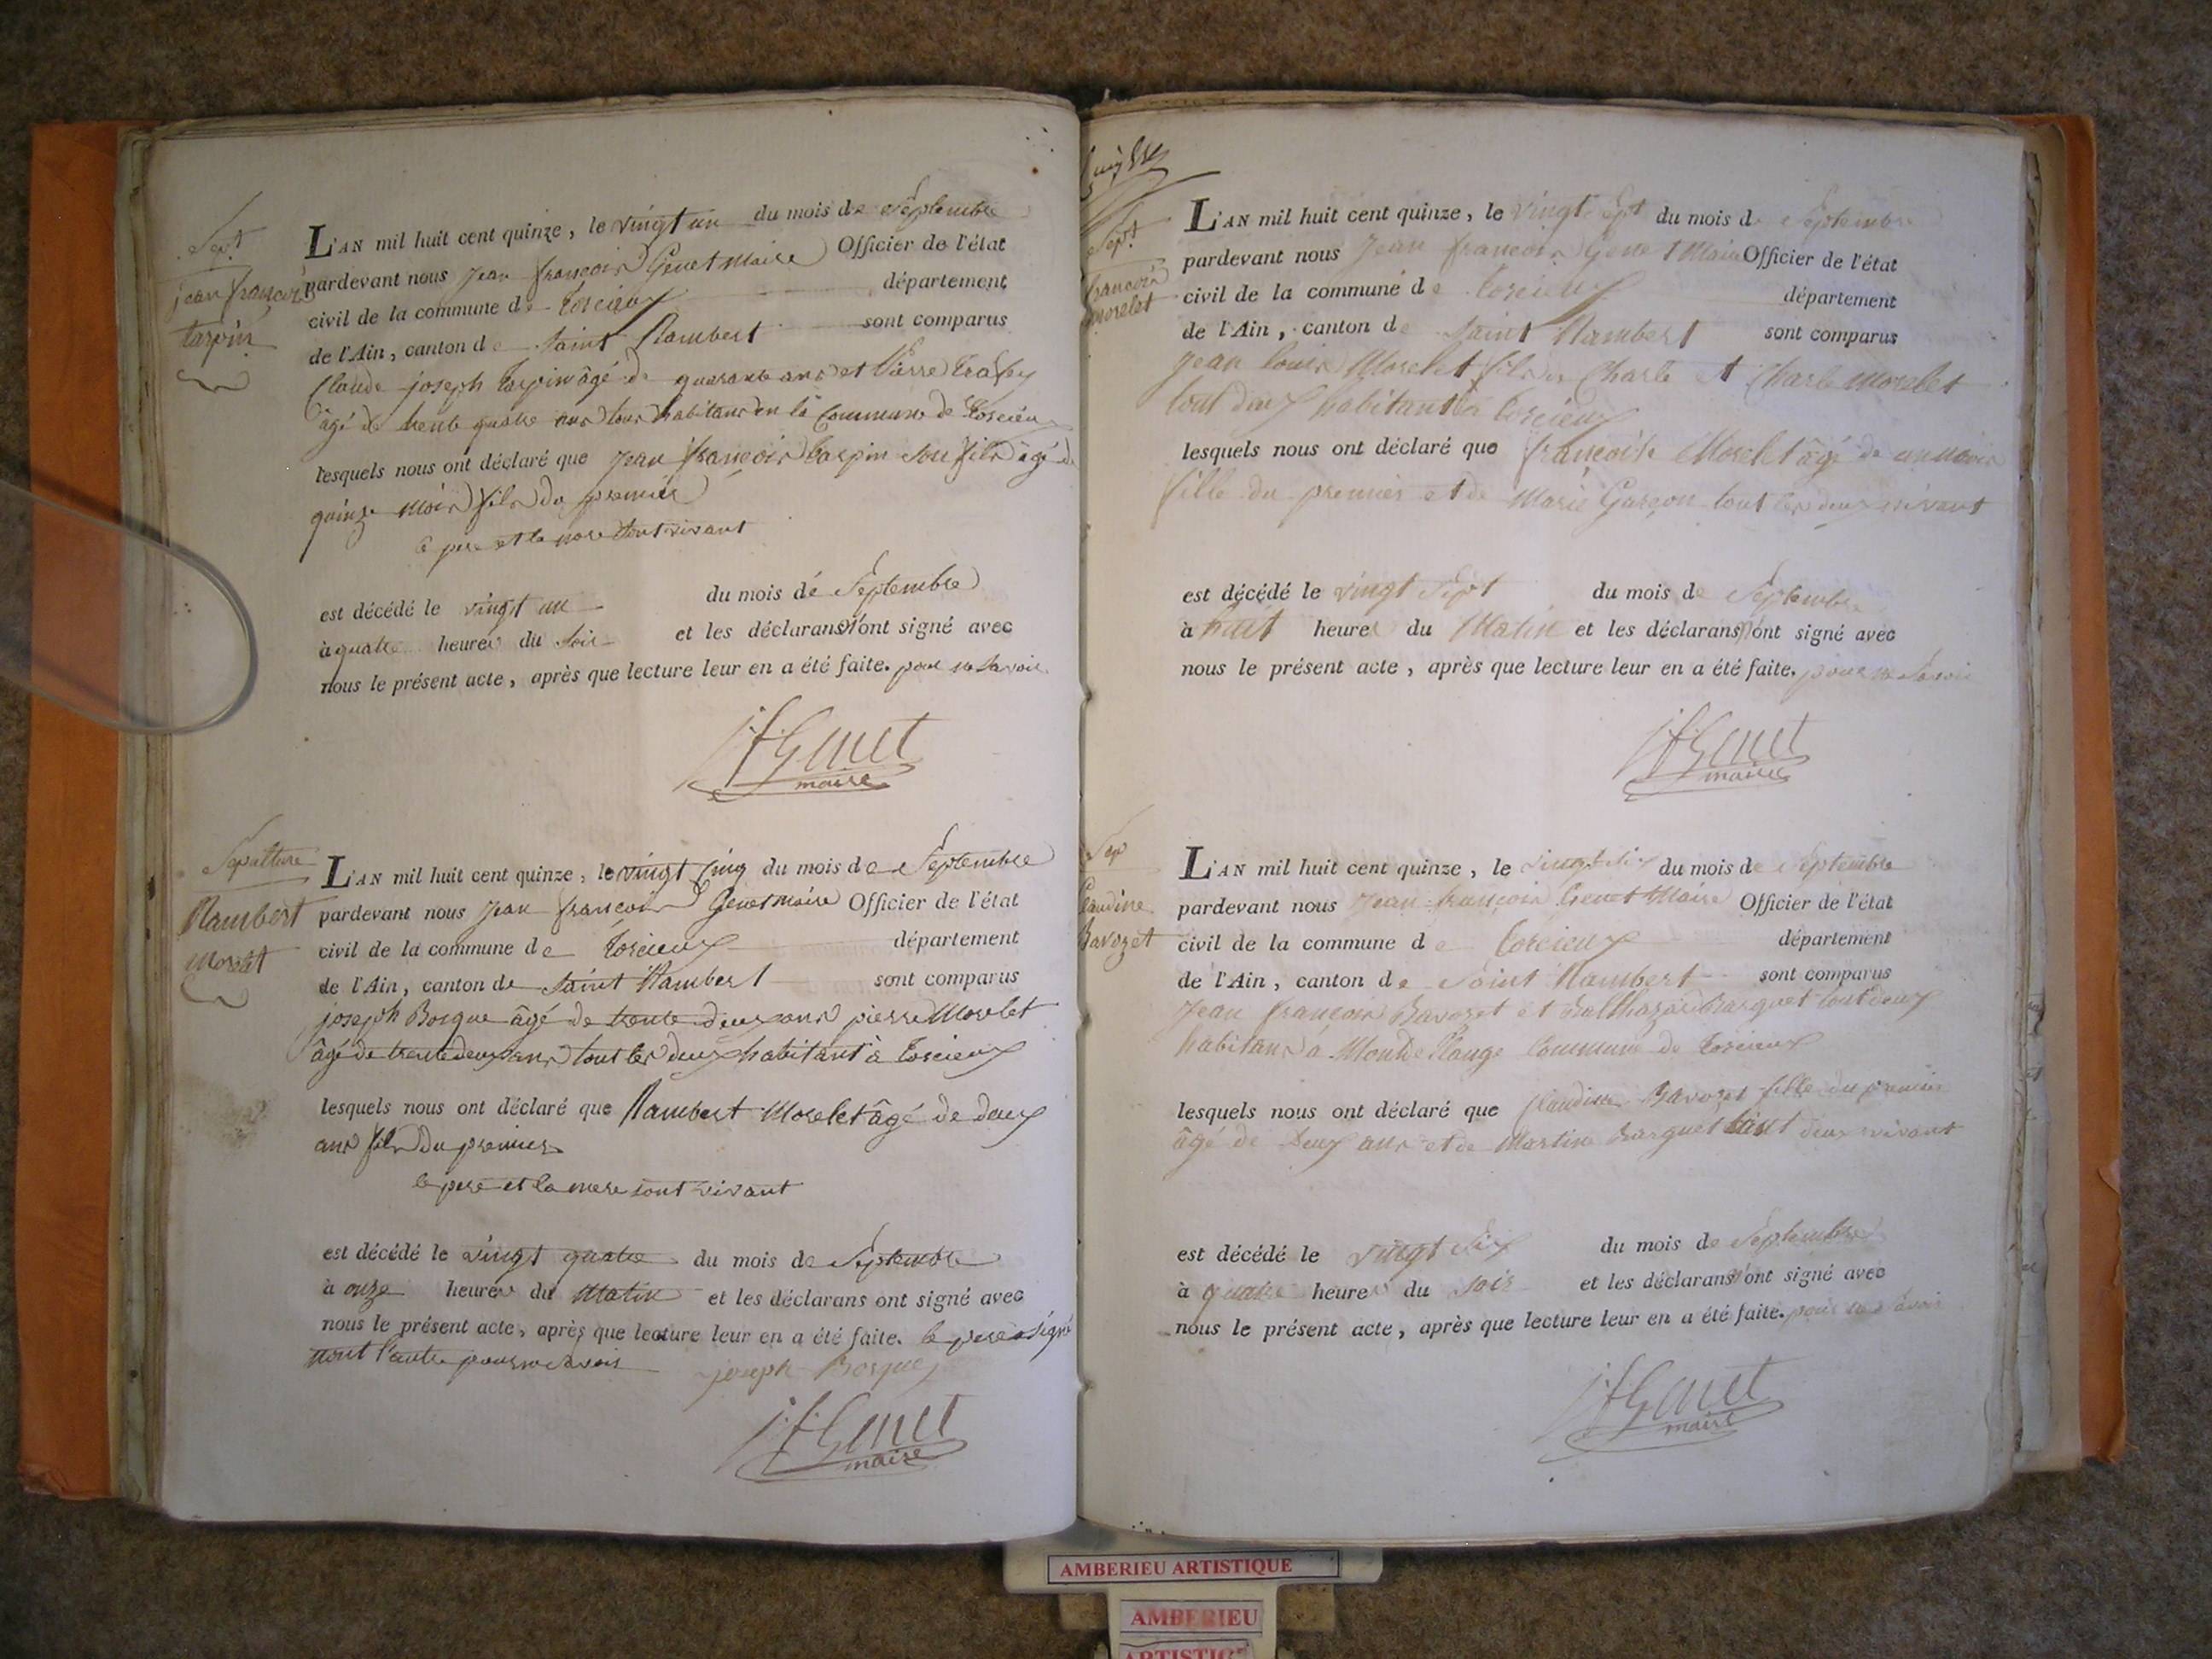 Sept
jean françois
tarpin
L'AN mil huit cent quinze, le vingt un du mois de Septembre
pardevant nous jean françois Genet Maire Officier de l'état
civil de la commune de torcieux département
de l'Ain, canton de Saint Rambert sont comparus
Claude joseph tarpin âgé de quarante ans et Pierre
âgé de trente quatre ans tous habitans en la Commune de torcieux
lesquels nous ont déclaré que jean françois tarpin son fils âgé de
quinze mois fils du premier
le pere et la mere sont vivant
est décédé le vingt un du mois de Septembre
à quatre heures du soir et les déclarans n'ont signé avec
nous le présent acte, après que lecture leur en a été faite. pour ne savoir
jf Genet
maire
Sepulture
Rambert
morelet
L'AN mil huit cent quinze, le vingt cinq du mois de Septembre
pardevant nous jean françois Genet maire Officier de l'état
civil de la commune de torcieux département
de l'Ain, canton de Saint Rambert sont comparus
joseph Bosque âgé de trente deux ans pierre Morelet
âgé de trente deux ans tout les deux habitant à torcieux
lesquels nous ont déclaré que Rambert Morelet âgé de deux
ans fils du premier
le pere et la mere sont vivant
est décédé le vingt quatre du mois de Septembre
à onze heures du Matin et les déclarans ont signé avec
nous le présent acte, après que lecture leur en a été faite. le pere a signé
nont l'autre pour ne savoir
joseph Bosque
jf Genet
maire
Sept
françois
morelet
L'AN mil huit cent quinze, le vingt sept du mois de Septembre
pardevant nous Jean françois Genet Maire Officier de l'état
civil de la commune de torcieux département
de l'Ain, canton de Saint Rambert sont comparus
jean louis Morelet fils de Charle et Charle Morelet
tout deux habitant à torcieux
lesquels nous ont déclaré que françoise Morelet âgé de un mois
fille du premier et de Marie Garçon tout les deux vivant
est décédé le vingt sept du mois de Septembre
à huit heures du Matin et les déclarans n'ont signé avec
nous le présent acte, après que lecture leur en a été faite. pour ne savoir
jf Genet
maire
Sep
Claudine
Bavozet
L'AN mil huit cent quinze, le vingt six du mois de Septembre
pardevant nous Jean françois Genet Maire Officier de l'état
civil de la commune de torcieux département
de l'Ain, canton de Saint Rambert sont comparus
Jean françois Bavozet et Balthazar Barquet tout deux
habitans à commune de torcieux
lesquels nous ont déclaré que Claudine Bavozet fille du premier
âgé de Deux ans et de Martine Barquet tout deux vivant
est décédé le vingt six du mois de Septembre
à quatre heures du soir et les déclarans n'ont signé avec
nous le présent acte, après que lecture leur en a été faite. pour ne savoir
jf Genet
maire
AMBERIEU ARTISTIQUE
AMBERIEU